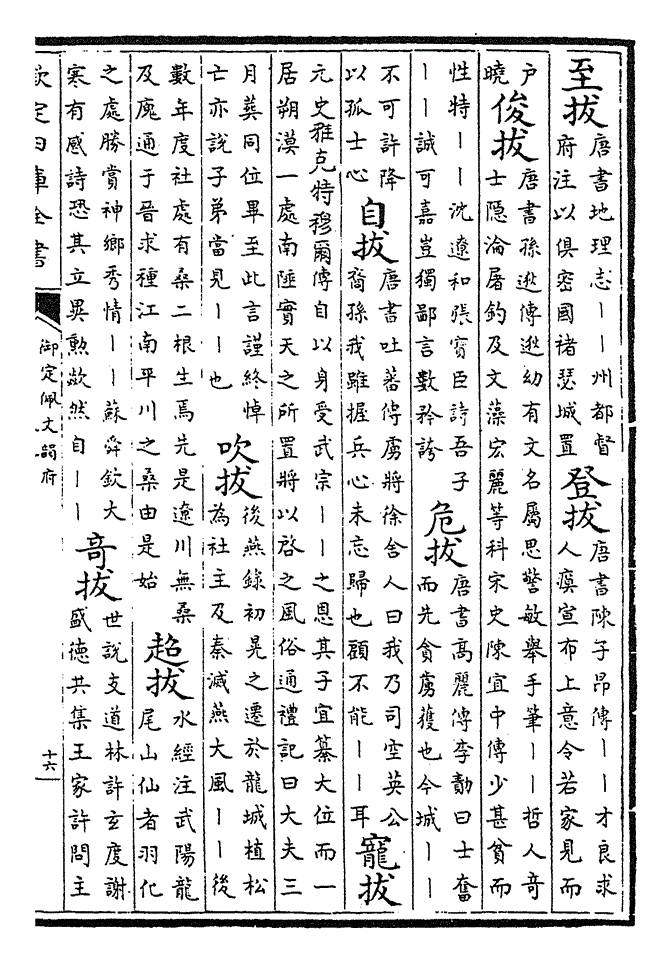 至拔
唐書地理志――州都督
府注以俱密國褚瑟城置
登拔
唐書陳子昂傳――才良求
人瘼宣布上意令若家見而
戶
曉
俊拔
唐書孫逖傳逖幼有文名屬思警敏舉手筆――哲人奇
士隱淪屠釣及文藻宏麗等科宋史陳宜中傳少甚貧而
性特――沈遼和張寶臣詩吾子
――誠可嘉豈獨鄙言數矜誇
危拔
唐書高麗傳李勣曰士奮
而先貪虜獲也今城――
不可許降
以孤士心
自拔
唐書吐蕃傳虜將徐舍人曰我乃司空英公
裔孫我雖握兵心未忘歸也顧不能――耳
寵拔
元史雅克特穆爾傳自以身受武宗――之恩其子宜纂大位而一
居朔漠一處南陲實天之所置將以啓之風俗通禮記曰大夫三
月葬同位畢至此言謹終悼
亡亦説子弟當見――也
吹拔
後燕錄初晃之遷於龍城植松
為社主及秦滅燕大風――後
數年度社處有桑二根生焉先是遼川無桑
及廆通于晉求種江南平川之桑由是始
超拔
水經注武陽龍
尾山仙者羽化
之處勝賞神鄉秀情――蘇舜欽大
寒有感詩恐其立異勲歘然自――
奇拔
世說支道林許玄度謝
盛德共集王家許問主
欽定四庫全書
御定佩文韻府
十六